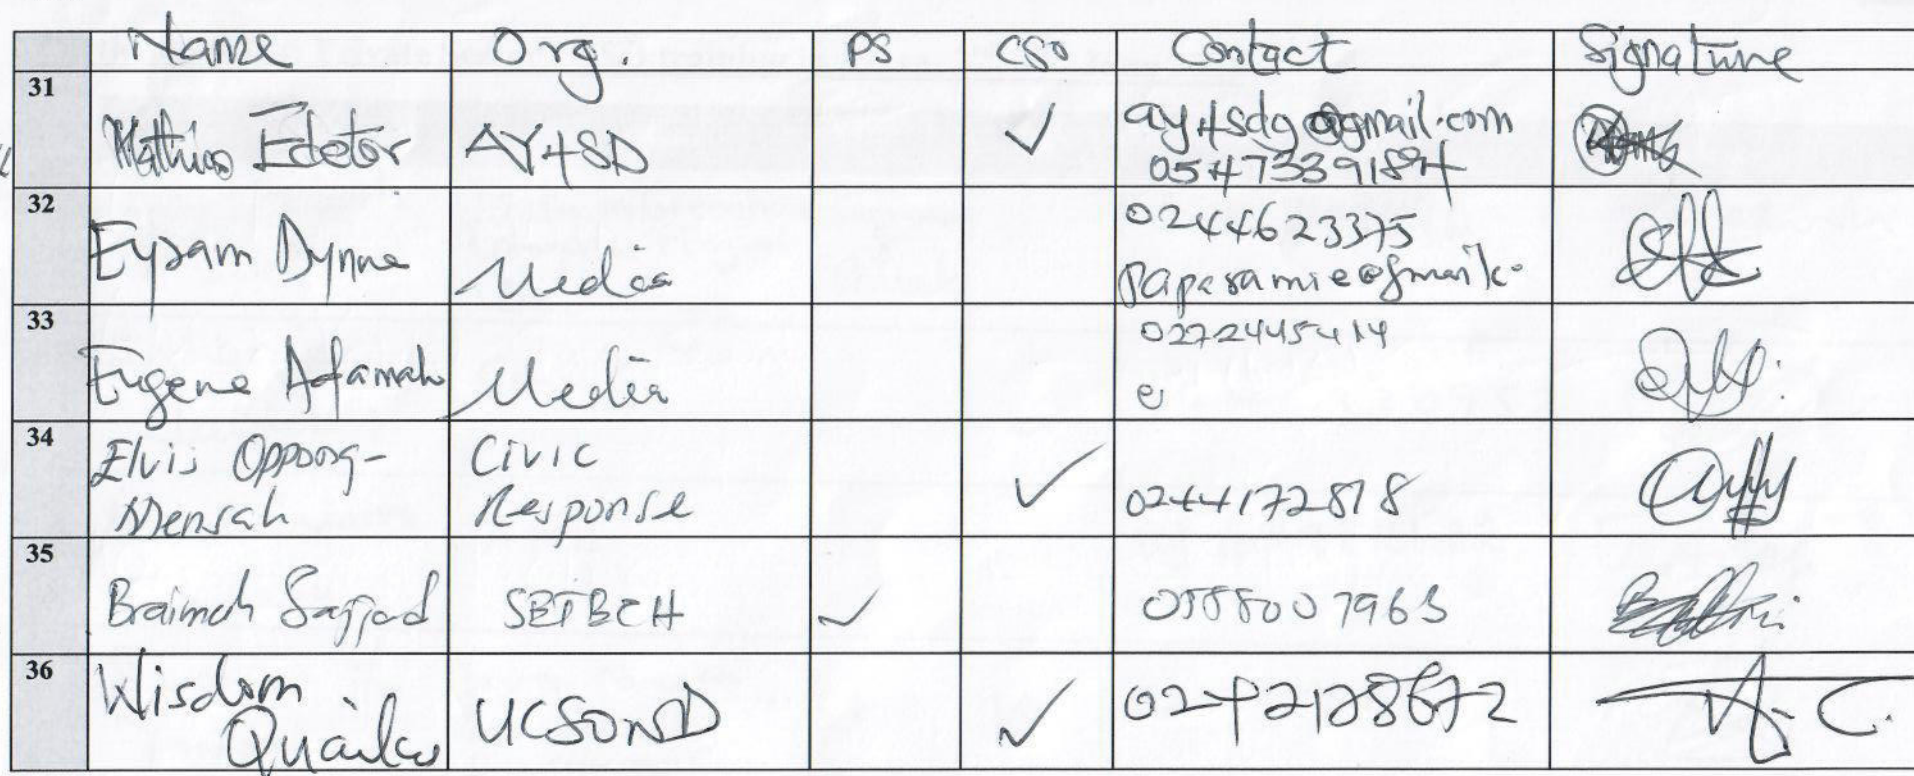 Name Org. PS CSO Contact Signature
31 Mathias Edetor AY4SD ✓ ay4sdg@gmail.com
0547339184
32 Eyram Dynne Media 0244623375
33 Eugene Adamah Media 0272445414
e
34 Elvis Oppong- Civic
Mensah Response ✓ 0244172818
35 Braimah Sajjad SETBCH ✓
36 Wisdom
UCSOND ✓ 0242128672